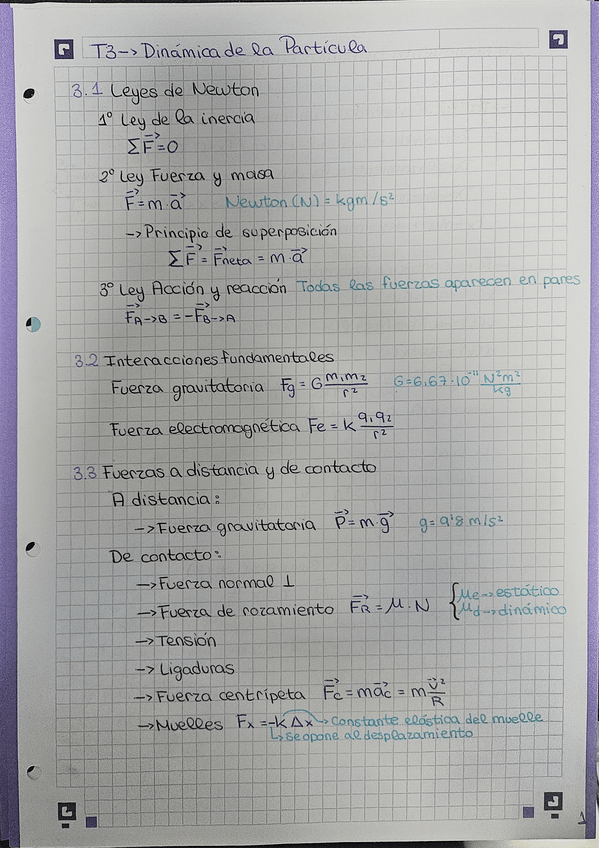 T3-> Dinámica de la Partícula
3.1 Leyes de Newton
1º Ley de la inercia
ΣF⃗=0
2º Ley Fuerza y masa
F⃗=m·a⃗ Newton (N) = kgm/s²
-> Principio de superposición
ΣF⃗ = F⃗neta = m·a⃗
3º Ley Acción y reacción Todas las fuerzas aparecen en pares
F⃗A->B = -F⃗B->A
3.2 Interacciones fundamentales
Fuerza gravitatoria Fg = G m₁m₂/r² G=6,67·10⁻¹¹ N²m²/kg
Fuerza electromagnética Fe = k q₁q₂/r²
3.3 Fuerzas a distancia y de contacto
A distancia:
-> Fuerza gravitatoria P⃗=m·g⃗ g=9'8 m/s²
De contacto:
-> Fuerza normal ⊥
-> Fuerza de rozamiento F⃗R = μ·N { μe -> estático
μd -> dinámico
-> Tensión
-> Ligaduras
-> Fuerza centrípeta F⃗c = ma⃗c = m v⃗²/R
-> Muelles Fx = -kΔx -> Constante elástica del muelle
↳ se opone al desplazamiento
1